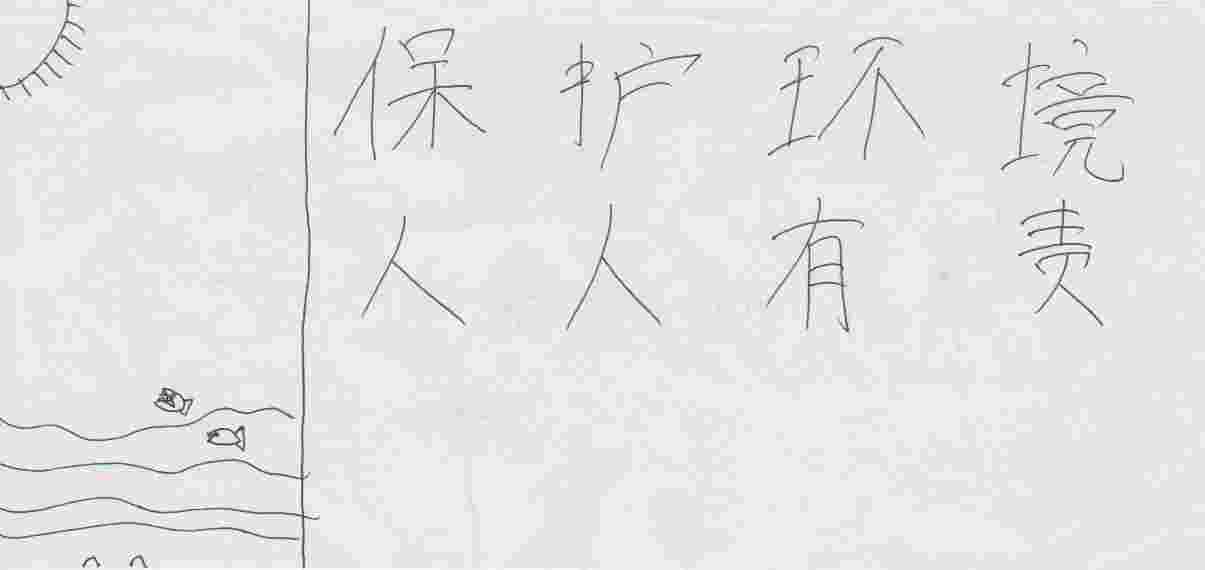 保护环境
人人有责